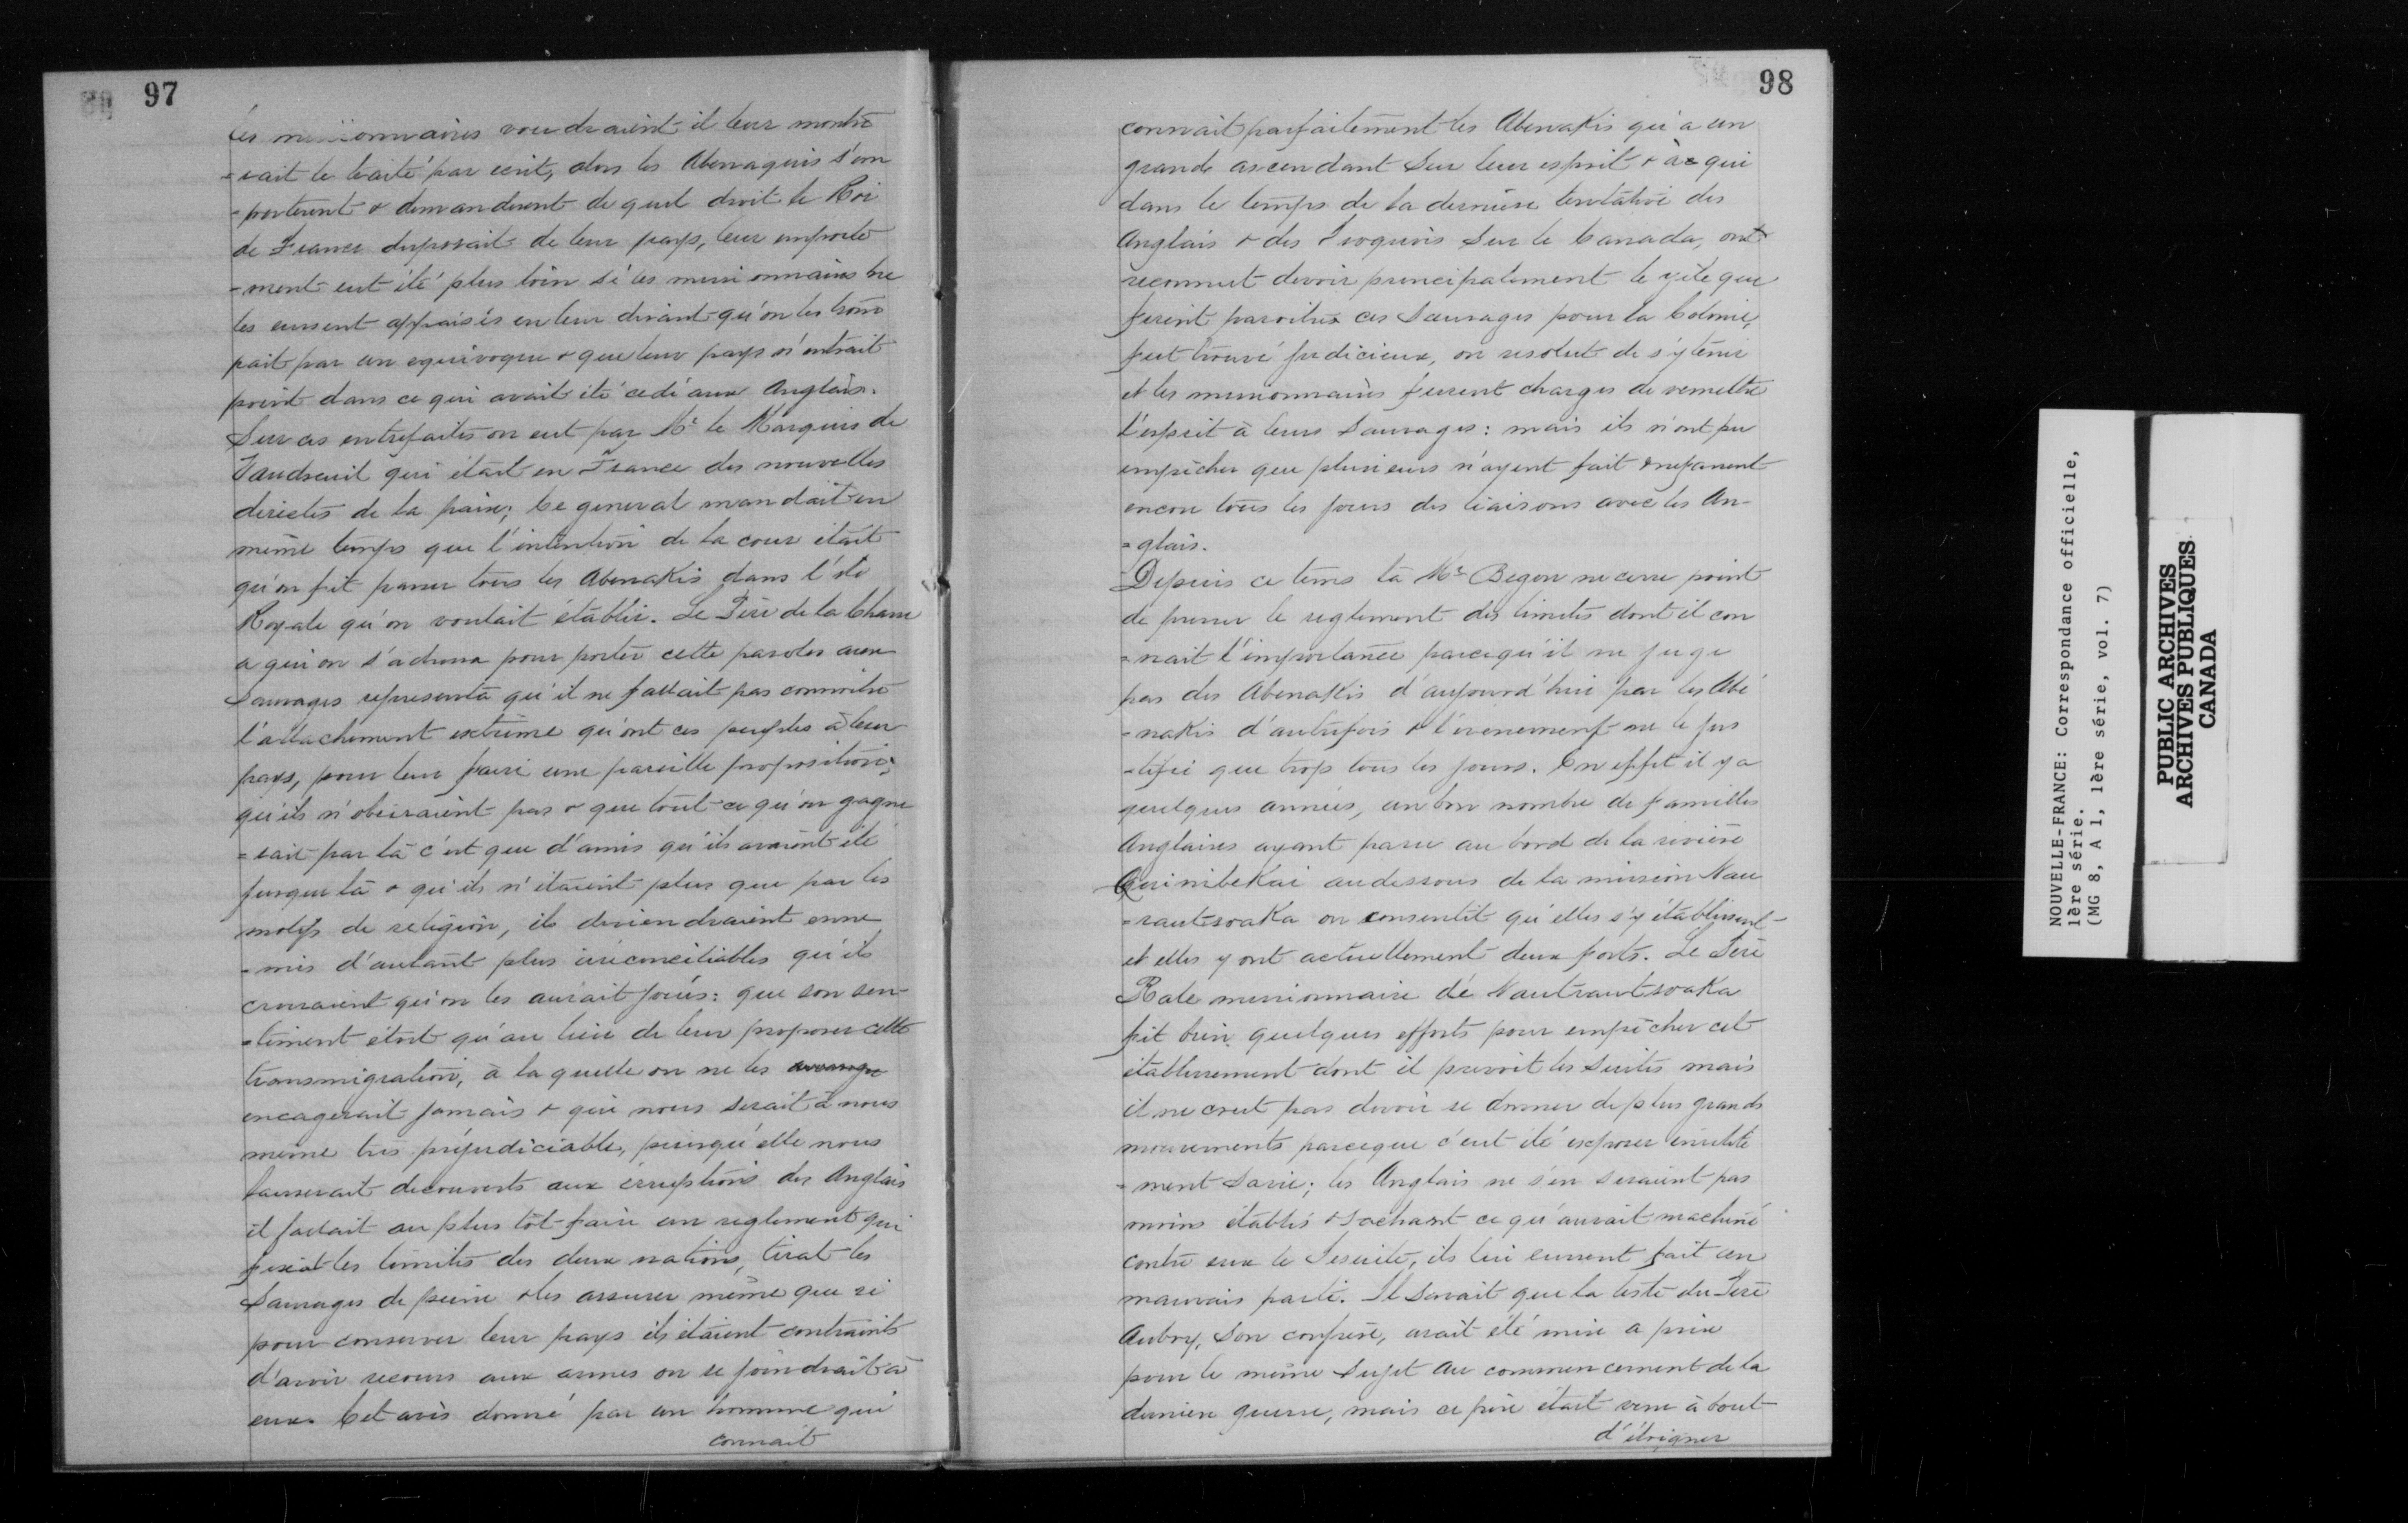 97
les missionnaires voudraient il leur montre
=rait le traité par ecrit, alors les Abenaquis s'em
-porterent & demanderent de quel droit le Roi
de France disposait de leur pays, leur emporte
-ment eut été plus loin si les missionnaires ne
les eussent appaisés en leur disant qu'on les trom
pait par un equivoque & que leur pays n'entrait
point dans ce qui avait été cedé aux Anglais.
Sur ces entrefaites on eut par Mr le Marquis de
Vaudreuil qui était en France des nouvelles
directes de la paix; Ce general mandait en
même temps que l'intention de la cour était
qu'on fit passer tous les Abenakis dans l'ile
Royale qu'on voulait établir. Le Père de la Chasse
a qui on s'adressa pour porter cette paroles aux
Sauvages representa qu'il ne fallait pas connoitre
l'attachement extrême qu'ont ces peuples à leur
pays, pour leur faire une pareille proposition;
qu'ils n'obeiraient pas & que tout ce qu'on gagne
=rait par là c'est que d'amis qu'ils avaient été
jusque là & qu'ils n'étaient plus que par les
motifs de religion, ils deviendraient enne
-mis d'autant plus irréconciliables qu'ils
croiraient qu'on les aurait joués: que son sen-
=timent étoit qu'au lieu de leur proposer cette
transmigration, à la quelle on ne les
encagerait jamais & qui nous serait à nous
même très préjudiciable, puisqu'elle nous
laisserait decouverts aux irruptions des Anglais
il fallait au plus tôt faire un reglement qui
fixat les limites des deux nations, tirat les
Sauvages de peine & les assurer même que si
pour conserver leur pays ils étaient contraints
d'avoir recours aux armes on se joindrait à
eux. Cet avis donné par un homme qui
connait
98
connait parfaitement les Abenakis qu'a un
grands ascendant sur leur esprit & à qui
dans le temps de la dernière tentative des
Anglais & des Iroquois sur le Canada, ont
reconnut devoir principalement le zèle que
firent paroitre ces Sauvages pour la Colonie,
fut trouvé judicieux, on resolut de s'y tenir
et les missionnaires furent charges de remettre
l'esprit à leurs Sauvages: mais ils n'ont pu
empêcher que plusieurs n'ayent fait & ne fassent
encore tous les jours des liaisons avec les An-
=glais.
Depuis ce tems là Mr Begon ne cesse point
de presser le reglement des limites dont il con
=nait l'importance parcequ'il ne juge
pas des Abenakis d'aujourd'hui par les Abé
=nakis d'autrefois & l'evenement ne le jus
-tifie que trop tous les jours. En effet il y a
quelques années, un bon nombre de familles
Anglaises ayant passé au bord de la rivière
Quinibekai audessous de la mission Nau
=rautsoaka on consentit qu'elles s'y établissent
et elles y ont actuellement deux forts. Le Père
Rale missionnaire de Nautrautsoaka
fit bien quelques efforts pour empêcher cet
établissement dont il prevoit les suites mais
il ne crut pas devoir se donner de plus grands
mouvements parceque c'eut été exposer inutile
=ment sa vie; les Anglais ne s'en seraient pas
moins établis & sachant ce qu'aurait machiné
contre eux le Jesuite, ils lui eussent fait un
mauvais parti. Il savait que la teste du Père
Aubry, son confrère, avait été mise a prix
pour le même sujet au commencement de la
dernière guerre, mais ce père était venu à bout
d'éloigner
NOUVELLE-FRANCE: Correspondance officielle,
1ère série.
(MG 8, A 1, 1ère série, vol. 7)
PUBLIC ARCHIVES
ARCHIVES PUBLIQUES
CANADA